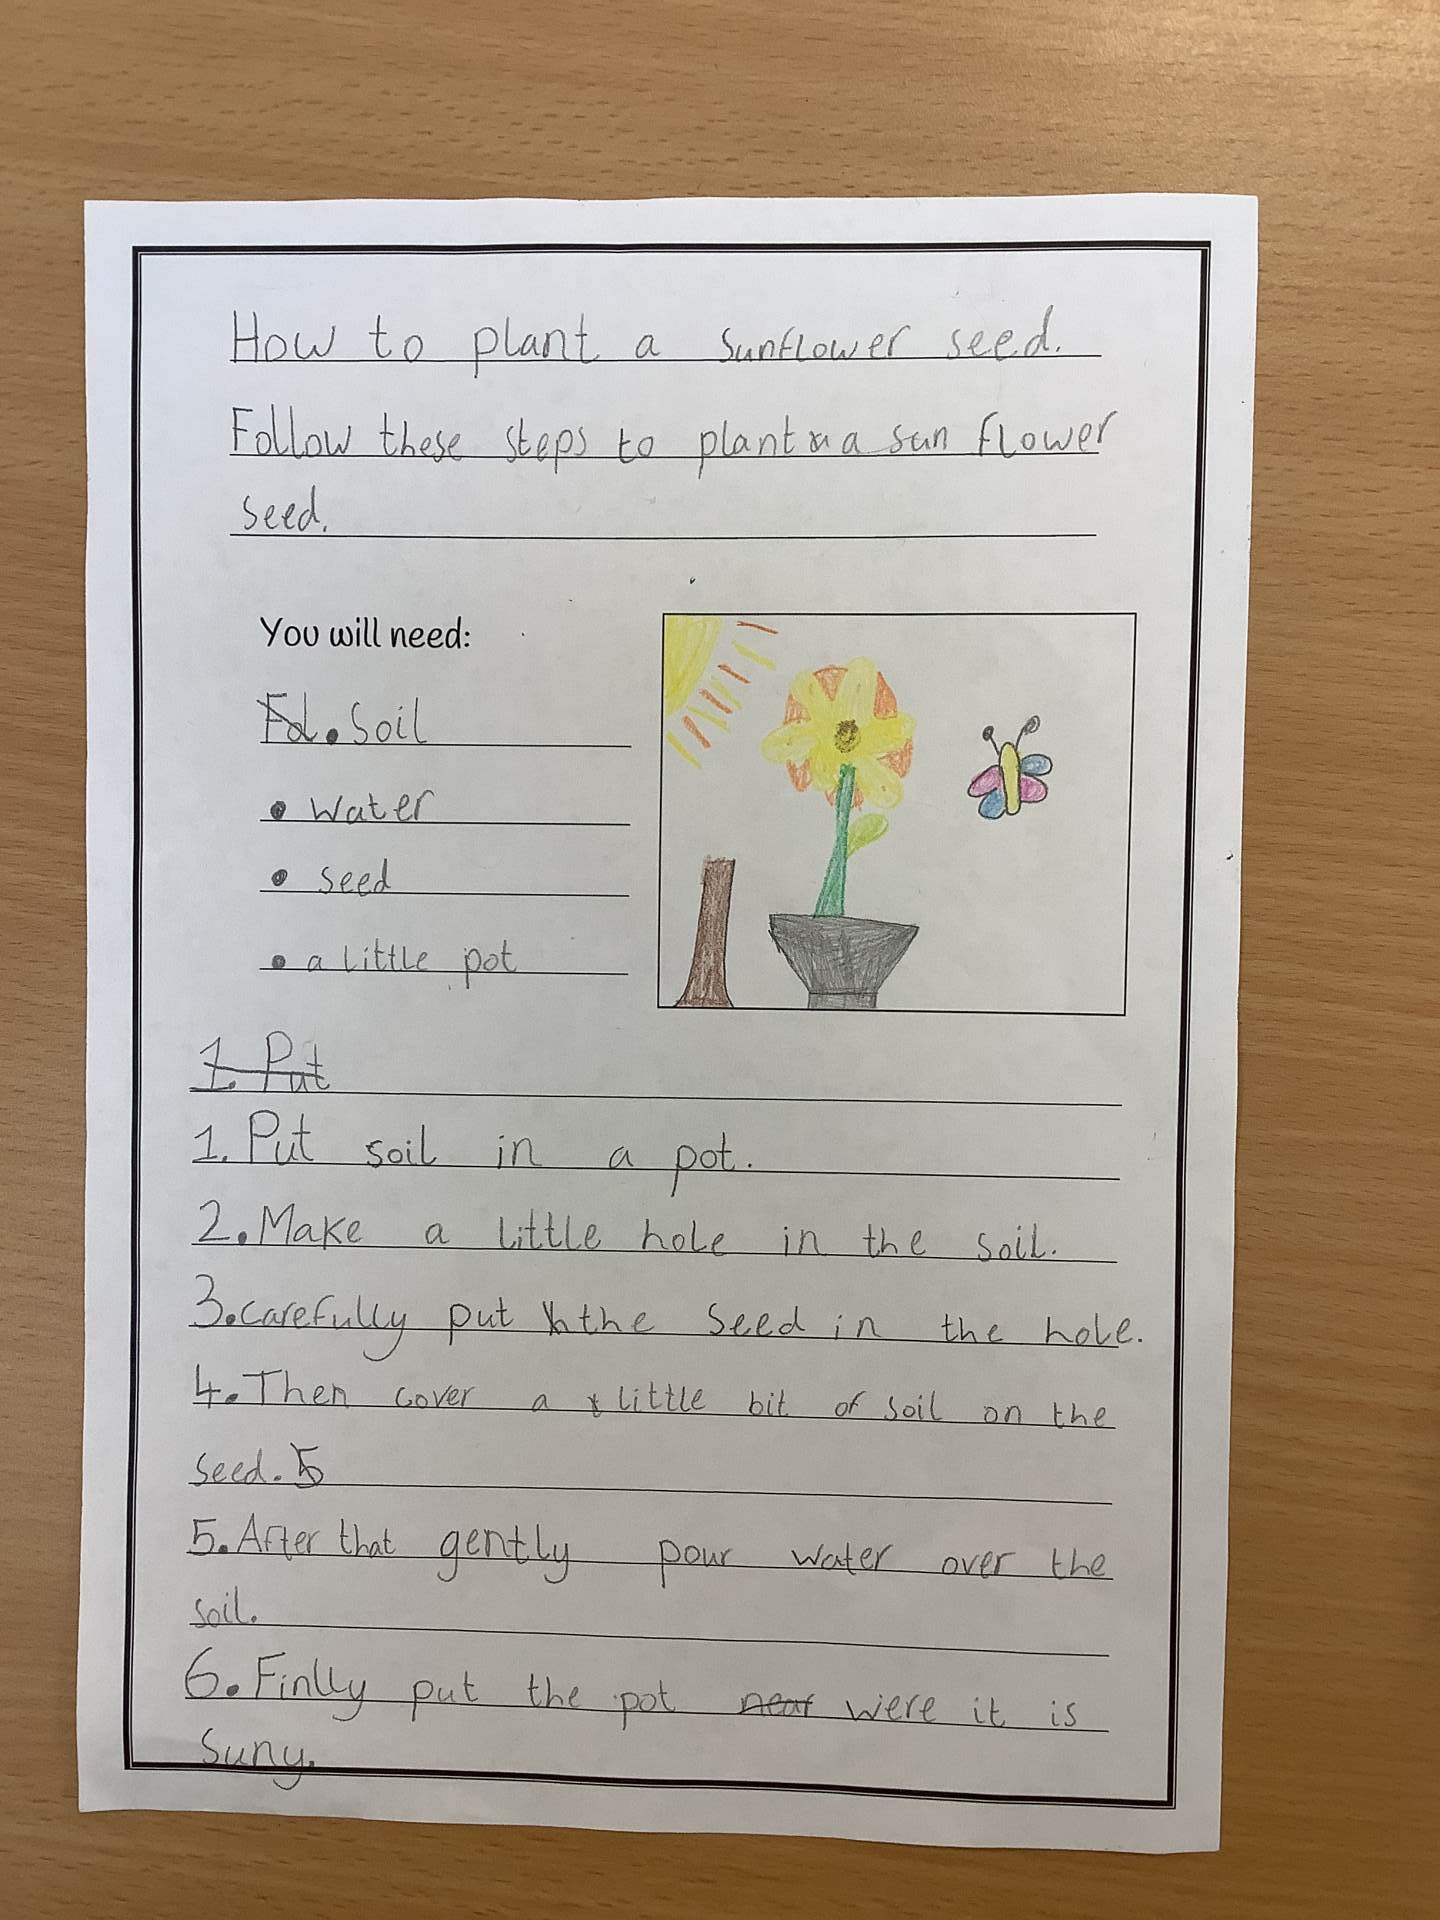 How to plant a sunflower seed.
Follow these steps to plant a sun flower
seed.
You will need:
• Soil
• water
• seed
• a little pot
1. Put
1. Put soil in a pot.
2. Make a little hole in the soil.
3. carefully put the seed in the hole.
4. Then cover a little bit of soil on the
seed. 5
5. After that gently pour water over the
soil.
6. Finlly put the pot near were it is
suny.